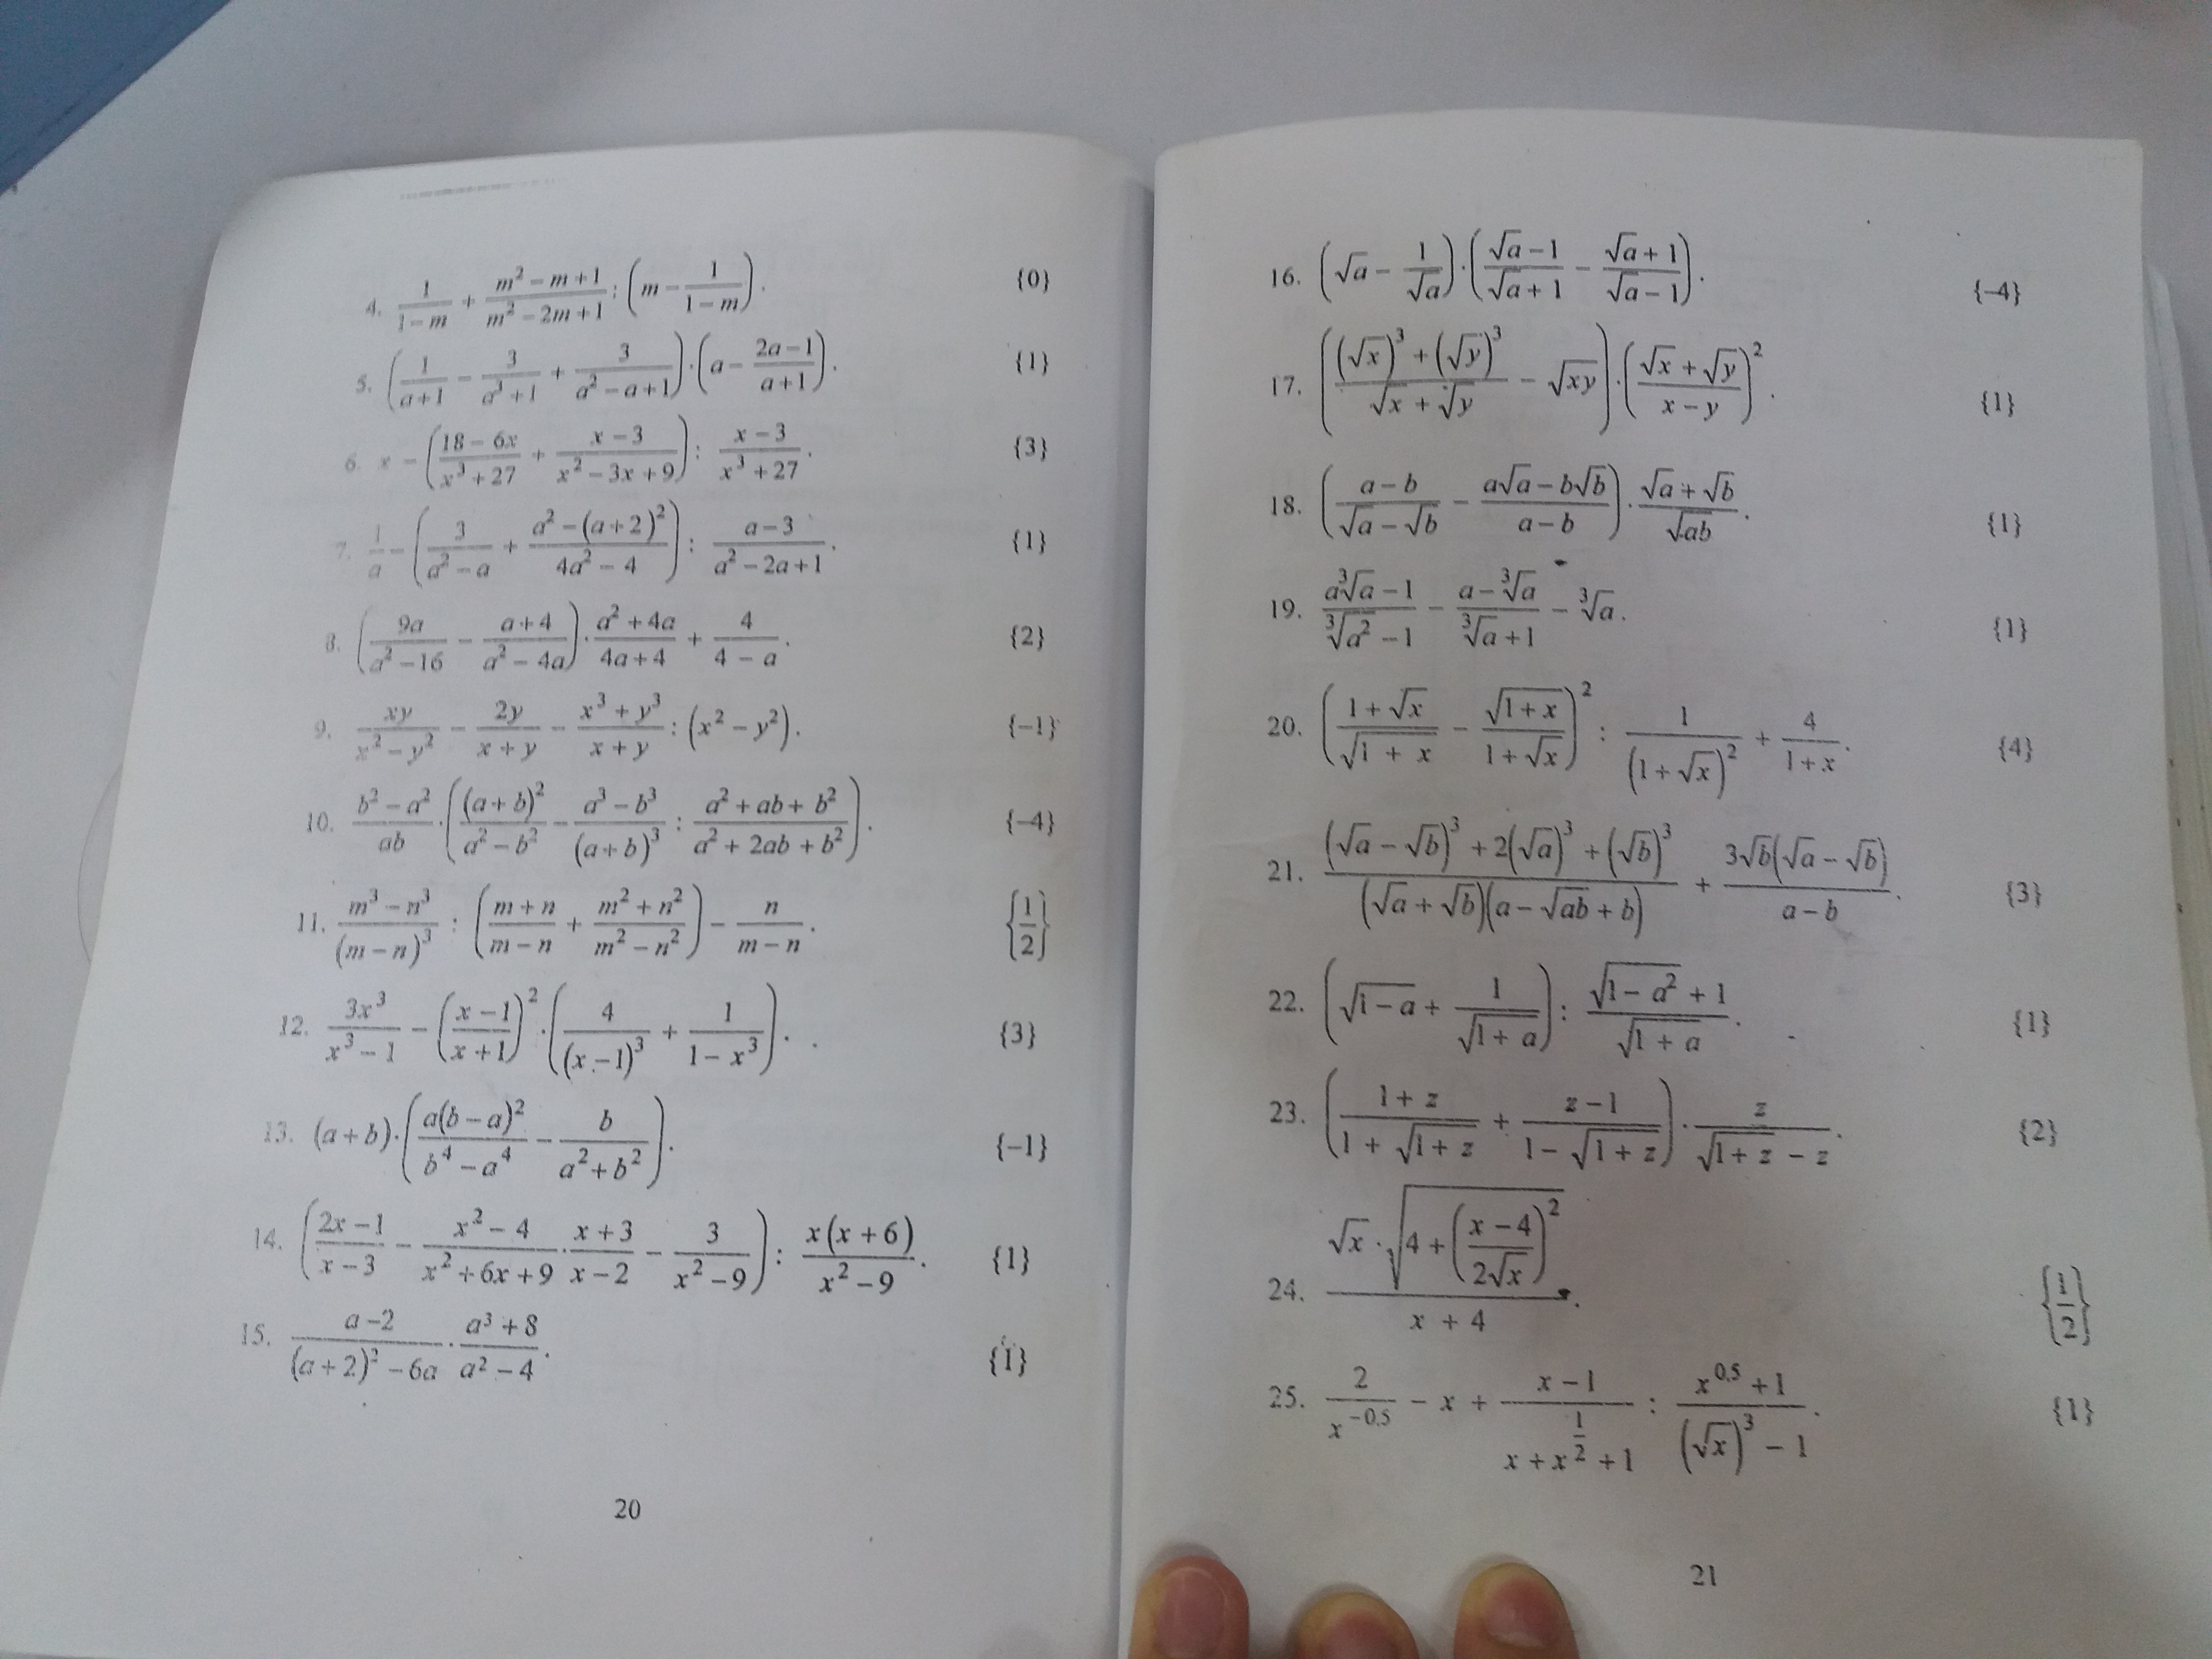 4. \frac{1}{1-m} + \frac{m^2-m+1}{m^2-2m+1} : \left(m - \frac{1}{1-m}\right). {0}
5. \left(\frac{1}{a+1} - \frac{3}{a^3+1} + \frac{3}{a^2-a+1}\right) \cdot \left(a - \frac{2a-1}{a+1}\right). {1}
6. x - \left(\frac{18-6x}{x^3+27} + \frac{x-3}{x^2-3x+9}\right) : \frac{x-3}{x^3+27}. {3}
7. \frac{1}{a} - \left(\frac{3}{a^2-a} + \frac{a^2-(a+2)^2}{4a^2-4}\right) : \frac{a-3}{a^2-2a+1}. {1}
8. \left(\frac{9a}{a^2-16} - \frac{a+4}{a^2-4a}\right) \cdot \frac{a^2+4a}{4a+4} + \frac{4}{4-a}. {2}
9. \frac{xy}{x^2-y^2} - \frac{2y}{x+y} - \frac{x^3+y^3}{x+y} : (x^2-y^2). {-1}
10. \frac{b^2-a^2}{ab} \cdot \left(\frac{(a+b)^2}{a^2-b^2} - \frac{a^3-b^3}{(a+b)^3} : \frac{a^2+ab+b^2}{a^2+2ab+b^2}\right). {-4}
11. \frac{m^3-n^3}{(m-n)^3} : \left(\frac{m+n}{m-n} + \frac{m^2+n^2}{m^2-n^2}\right) - \frac{n}{m-n}. \left\{\frac{1}{2}\right\}
12. \frac{3x^3}{x^3-1} - \left(\frac{x-1}{x+1}\right)^2 \cdot \left(\frac{4}{(x-1)^3} + \frac{1}{1-x^3}\right). {3}
13. (a+b) \cdot \left(\frac{a(b-a)^2}{b^4-a^4} - \frac{b}{a^2+b^2}\right). {-1}
14. \left(\frac{2x-1}{x-3} - \frac{x^2-4}{x^2+6x+9} \cdot \frac{x+3}{x-2} - \frac{3}{x^2-9}\right) : \frac{x(x+6)}{x^2-9}. {1}
15. \frac{a-2}{(a+2)^2-6a} \cdot \frac{a^3+8}{a^2-4}. {1}
20
16. \left(\sqrt{a} - \frac{1}{\sqrt{a}}\right) \cdot \left(\frac{\sqrt{a}-1}{\sqrt{a}+1} - \frac{\sqrt{a}+1}{\sqrt{a}-1}\right). {-4}
17. \left(\frac{(\sqrt{x})^3+(\sqrt{y})^3}{\sqrt{x}+\sqrt{y}} - \sqrt{xy}\right) \cdot \left(\frac{\sqrt{x}+\sqrt{y}}{x-y}\right)^2. {1}
18. \left(\frac{a-b}{\sqrt{a}-\sqrt{b}} - \frac{a\sqrt{a}-b\sqrt{b}}{a-b}\right) \cdot \frac{\sqrt{a}+\sqrt{b}}{\sqrt{ab}}. {1}
19. \frac{a\sqrt[3]{a}-1}{\sqrt[3]{a^2}-1} - \frac{a-\sqrt[3]{a}}{\sqrt[3]{a}+1} - \sqrt[3]{a}. {1}
20. \left(\frac{1+\sqrt{x}}{\sqrt{1+x}} - \frac{\sqrt{1+x}}{1+\sqrt{x}}\right)^2 : \frac{1}{(1+\sqrt{x})^2} + \frac{4}{1+x}. {4}
21. \frac{(\sqrt{a}-\sqrt{b})^3+2(\sqrt{a})^3+(\sqrt{b})^3}{(\sqrt{a}+\sqrt{b})(a-\sqrt{ab}+b)} + \frac{3\sqrt{b}(\sqrt{a}-\sqrt{b})}{a-b}. {3}
22. \left(\sqrt{1-a} + \frac{1}{\sqrt{1+a}}\right) : \frac{\sqrt{1-a^2}+1}{\sqrt{1+a}}. {1}
23. \left(\frac{1+z}{1+\sqrt{1+z}} + \frac{z-1}{1-\sqrt{1+z}}\right) \cdot \frac{z}{\sqrt{1+z}-z}. {2}
24. \frac{\sqrt{x} \cdot \sqrt{4+\left(\frac{x-4}{2\sqrt{x}}\right)^2}}{x+4}. \left\{\frac{1}{2}\right\}
25. \frac{2}{x^{-0,5}} - x + \frac{x-1}{x+x^{\frac{1}{2}}+1} : \frac{x^{0,5}+1}{(\sqrt{x})^3-1}. {1}
21